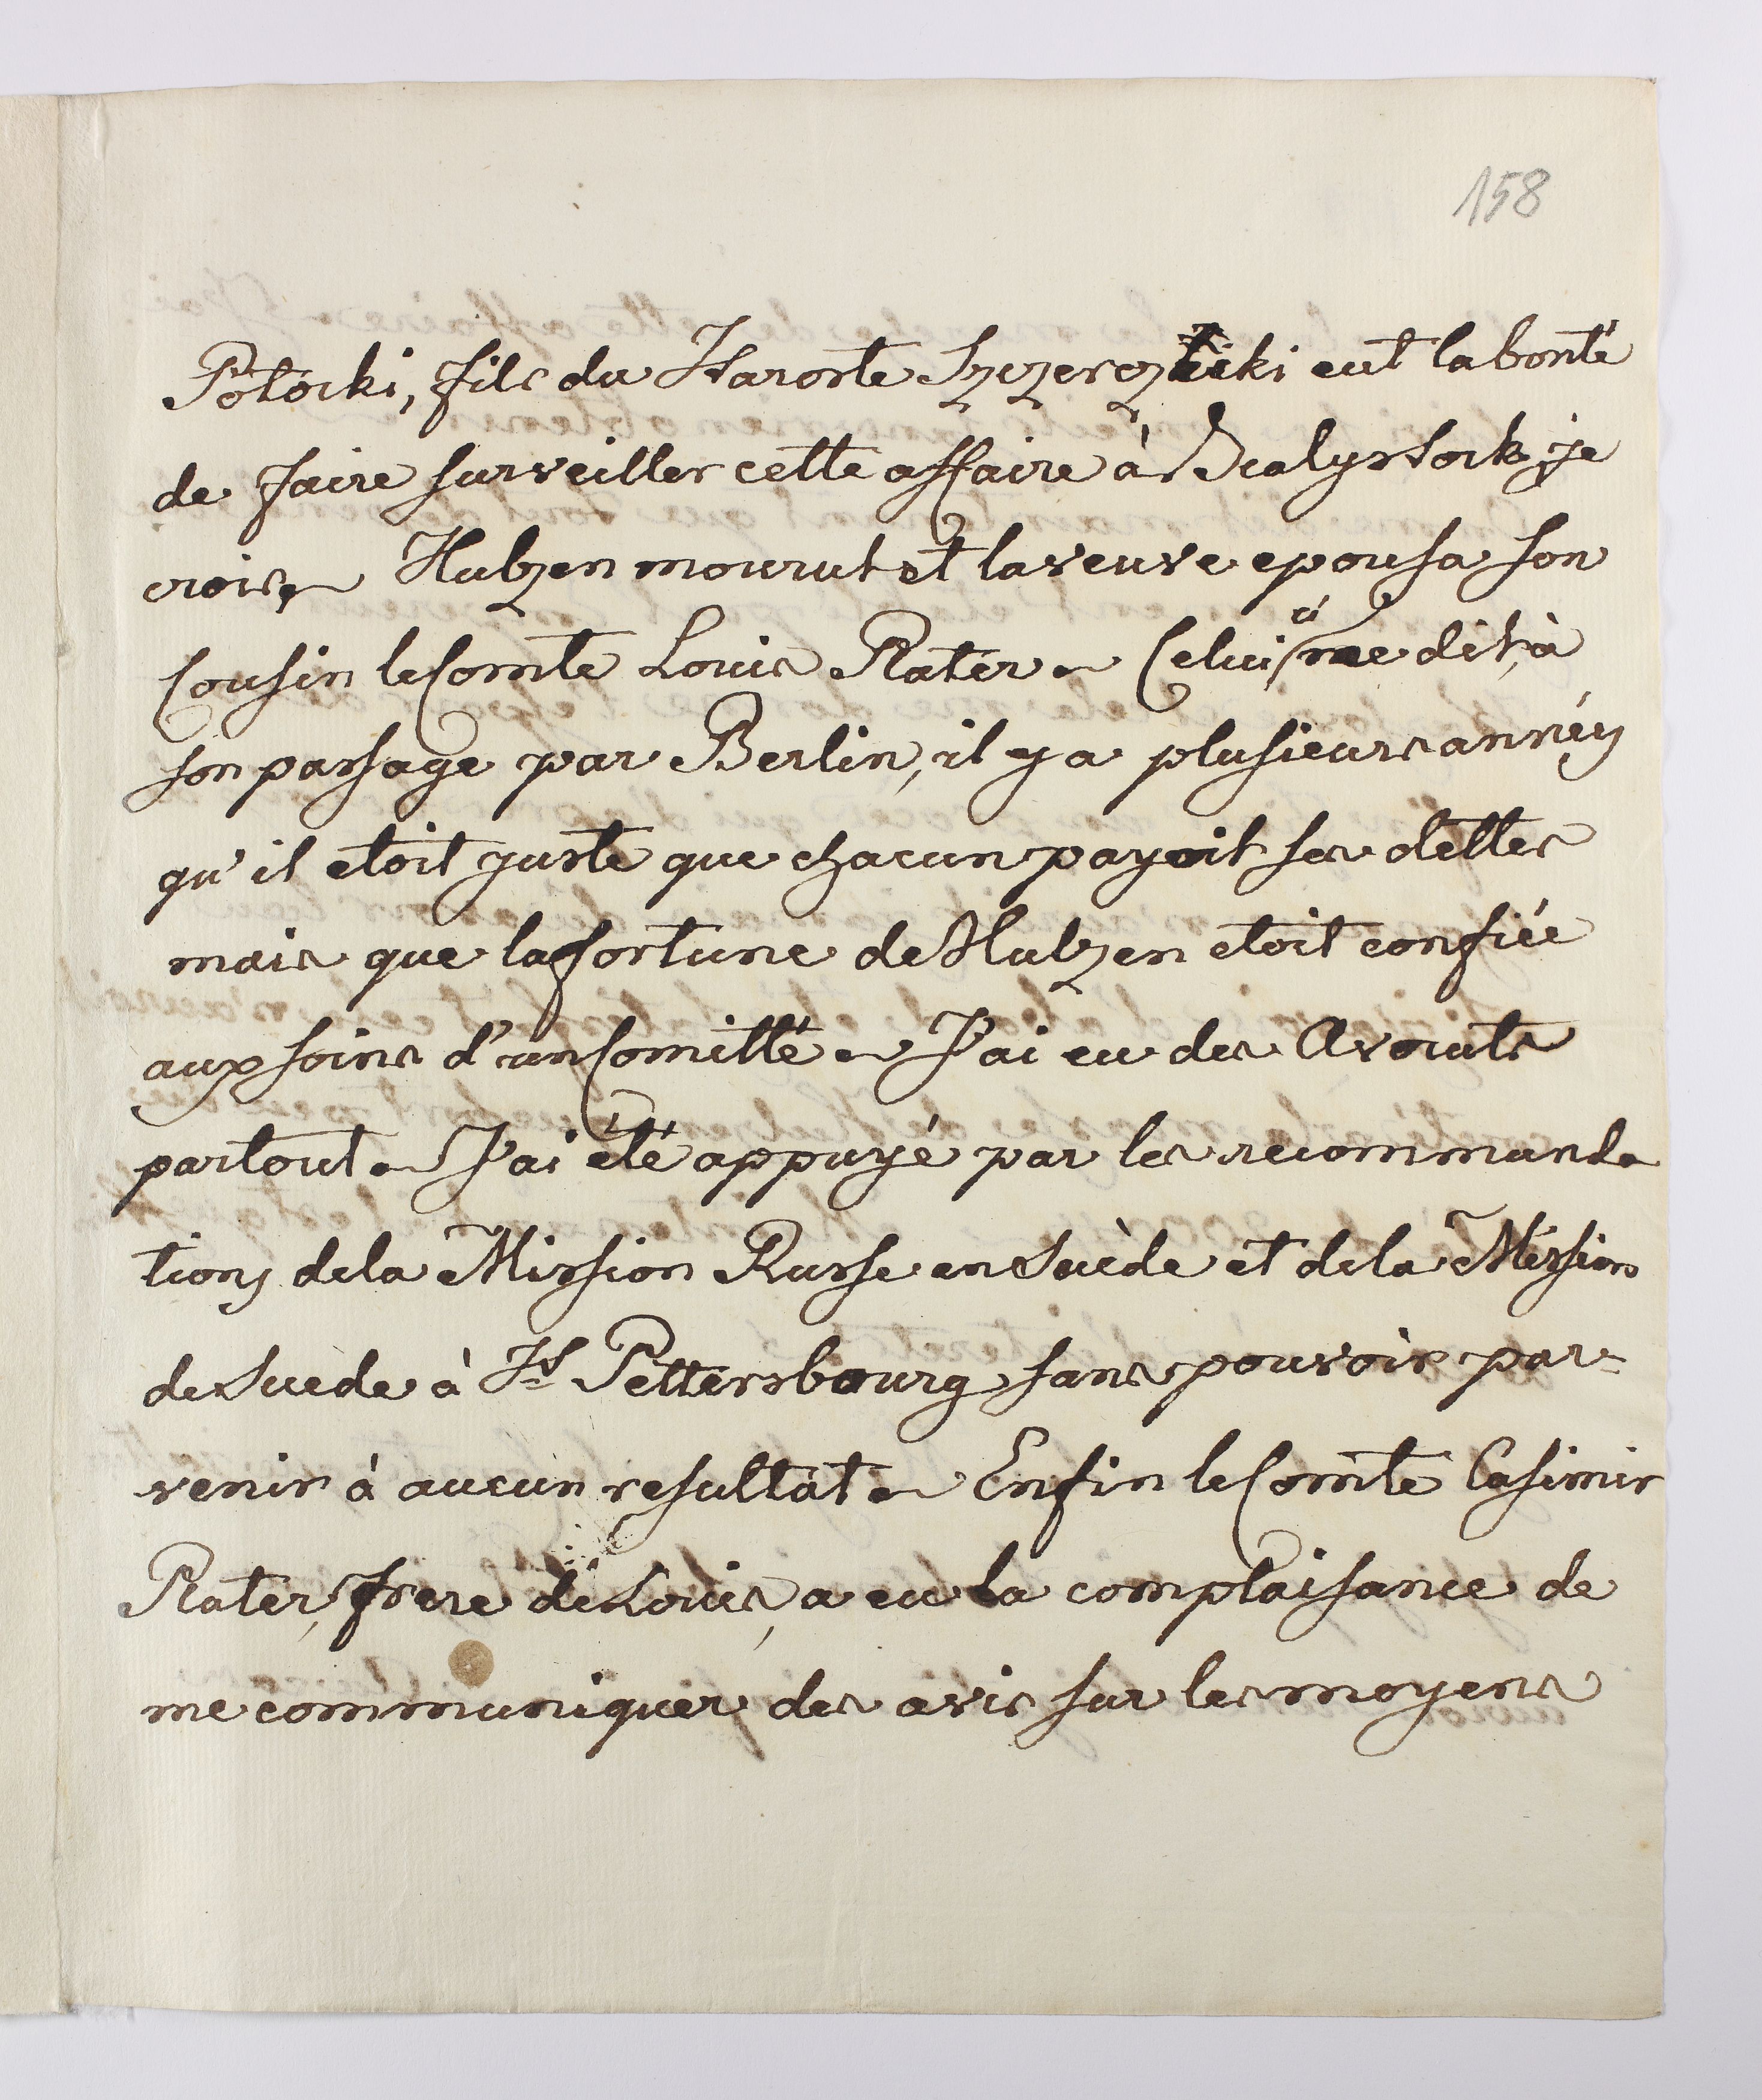 158
Potocki, fils du Staroste Szczerzecki eut la bonté
de faire surveiller cette affaire à Bialystock je
crois, Hulzen mourut et la veuve epousa son
Cousin le Comte Louis Plater. Celui ci me dit, à
son passage par Berlin, il y a plusieurs années
qu'il etoit juste que chacun payoit ses dettes
mais que la fortune de Hulzen etoit confiée
aux soins d'un Comitté. J'ai eu des Avocats
partout. J'ai été appuyé par les recommenda
tions de la Mission Russe en Suède et de la Mission
de Suede à St Pettersbourg sans pouvoir par=
venir à aucun resultat. Enfin le Comte Casimir
Plater, frere de Louis, a eu la complaisance de
me communiquer des avis sur les moyens